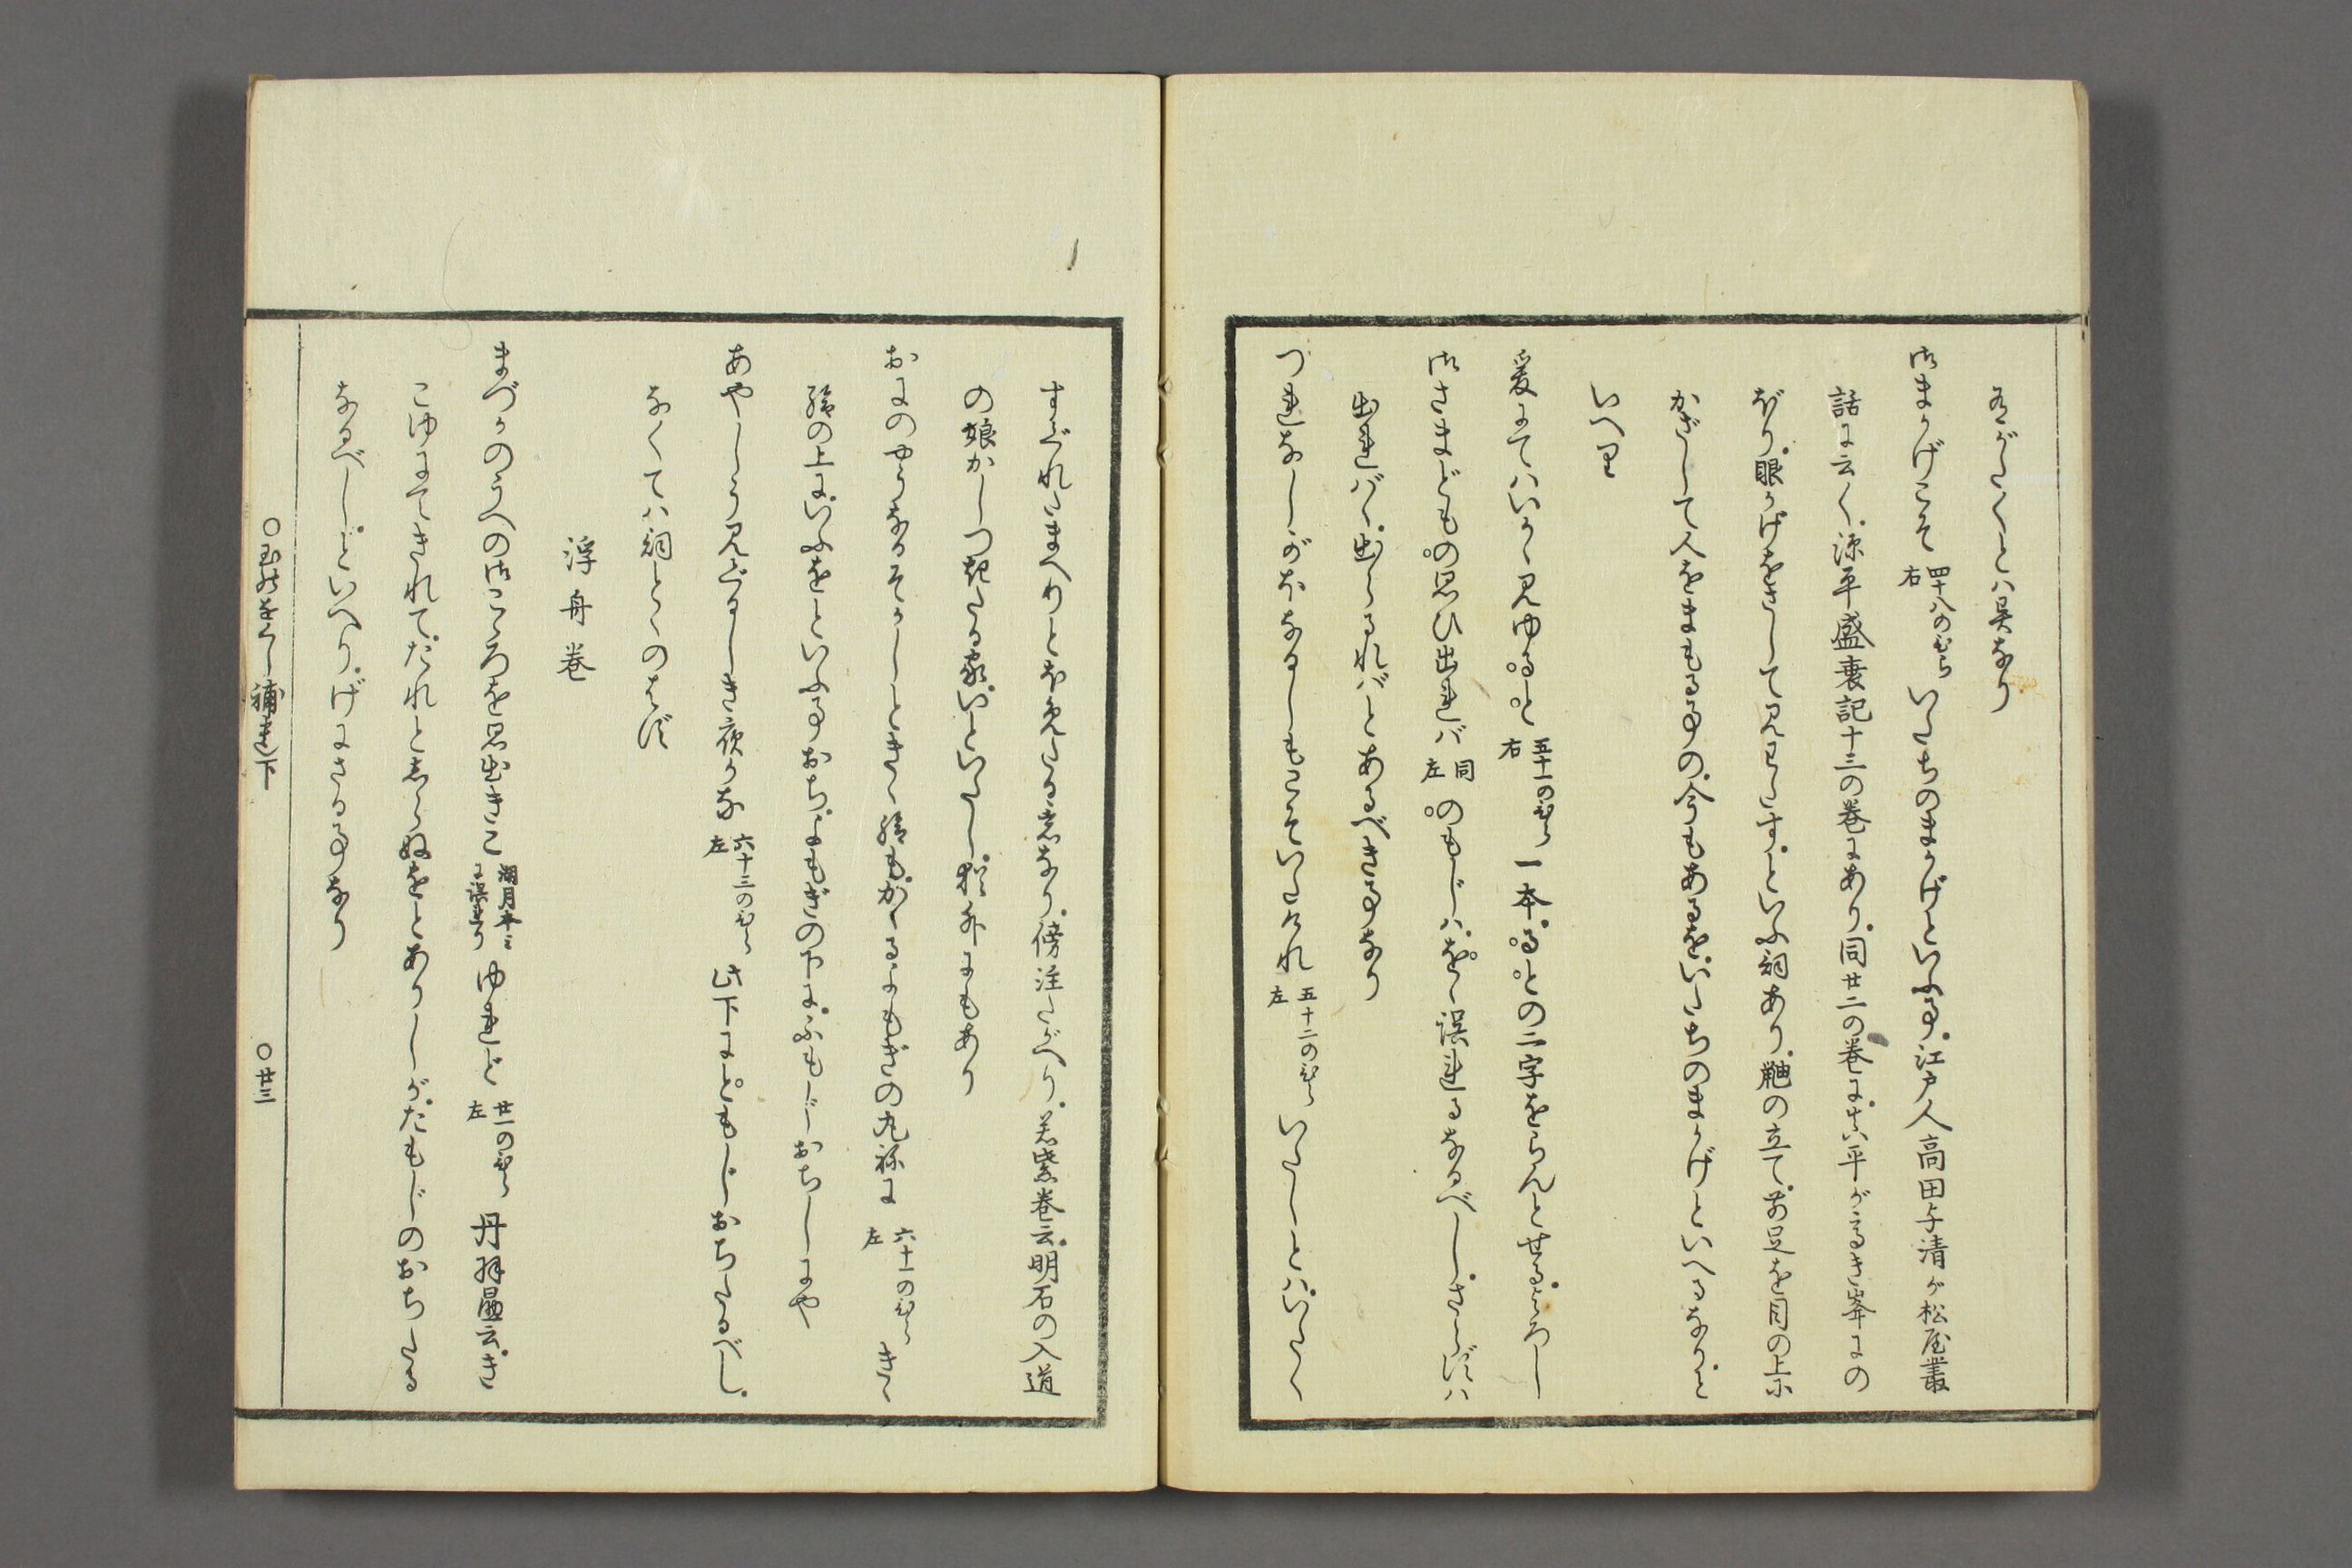 えがたくとは異なり
御まかげこそ 四十八のひら右 いたちのまかげといふ事。江戸人高田与清が松屋叢
話に云く。源平盛衰記十三の巻にあり。同廿二の巻に。真平がたかき峯にの
ぼり。眼かげをさして見わたす。といふ詞あり。鼬の立て。前足を目の上に
かざして人をまもる事の。今もあるを。いたちのまかげといへるなり。と
いへり
爰にてはいかゞ見ゆると 五十一のひら右 一本。るとの二字をらんとせる。よろし
御さまどもの思ひ出れば 同左 のもじは。をを誤れるなるべし。さらずは
出ればゝ。出らるればとあるべき事なり
つれなしがほなるしもこそいたけれ 五十二のひら左 いたしとは。いたく
すぐれたまへりとほめたる意なり。傍注たがへり。若紫巻云。明石の入道
の娘かしつきたる家。いといたし。猶外にもあり
おにのやうなるそかしときゝ給もかゝるよもぎの丸ねに 六十一のひら左 きゝ
給の上に。いふをといふ事おち。よもぎの下に。ふもじおちしにや
あやしう見ぐるしき夜かな 六十三のひら左 此下に。ともじおちたるべし。
なくては詞とゝのはず
浮舟巻
まづかのうへの御こゝろを思出きこ 湖月本ミに誤れり ゆれど 廿一のひら左 丹羽勗云。き
こゆにてきれて。たれとしらぬをとありしが。たもじのおちたる
なるべし。といへり。げにさる事なり
○玉の小櫛補遺下 ○廿三